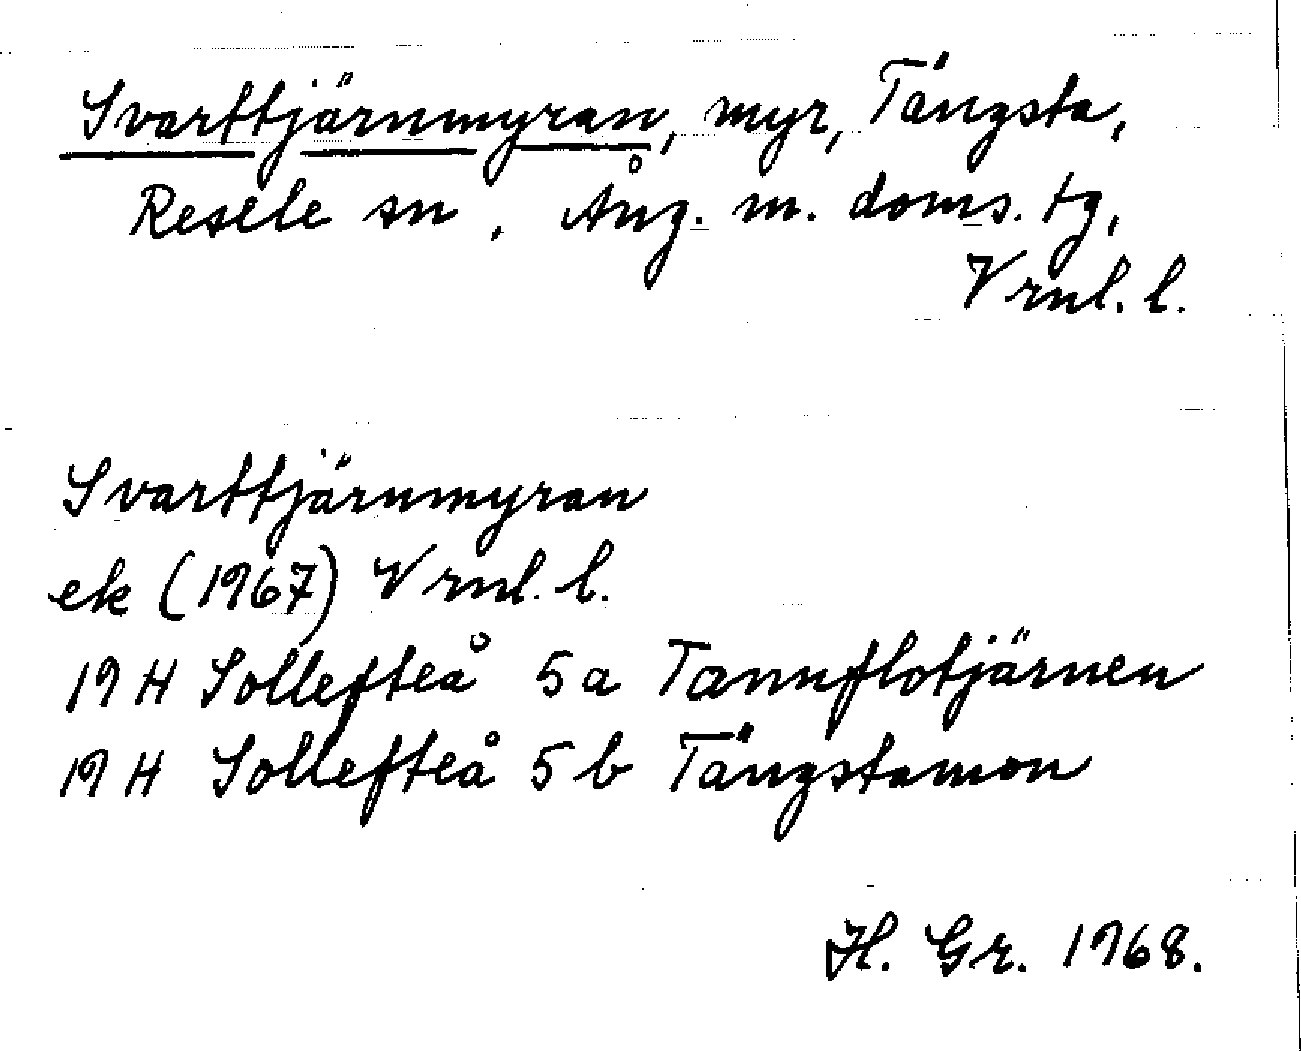 Svarttjärnmyran, myr, Tängsta,
Resele sn, Ång. m. doms. tg,
Vrnl. l.
Svarttjärnmyran
ek (1967) Vrnl. l.
19 H Sollefteå 5a Tannflotjärnen
19 H Sollefteå 5 b Tängstamon
H. Gr. 1968.